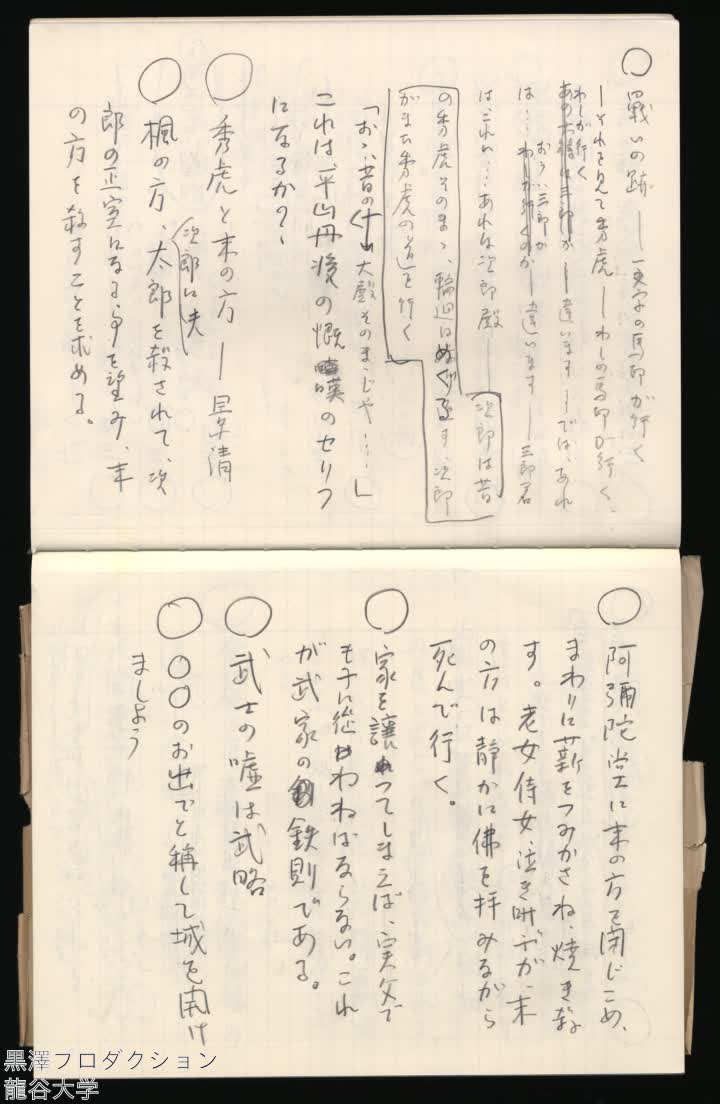 ○ 戦いの跡 ― 一文字の馬印が行く
―それを見て秀虎―わしの馬印が行く、
わしが行く
あの大将は三郎か ― 違います ― では、あれ
おう、三郎か
は… わしが行くのか ― 違います ― 三郎君
は、これに… あれは次郎殿 ― 次郎は昔
の秀虎そのまゝ、輪廻はめぐります、次郎
がまた秀虎の道を行く
「おゝ、昔の大殿そのまゝじゃ……」
これは、平山丹後の慨嘆のセリフ
になるか?
○ 秀虎と末の方 ― 景清
○ 楓の方、太郎を殺されて、次
次郎に夫
郎の正室になる事を望み、末
の方を殺すことを求める。
○ 阿彌陀堂に末の方を閉じこめ、
まわりに薪をつみかさね、焼き殺
す。老女侍女、泣き叫ぶが、末
の方は静かに佛を拝みながら
死んで行く。
○ 家を譲ってしまえば、実父で
も子に従わねばならない。これ
が武家の鉄則である。
○ 武士の嘘は武略
○ 〇〇のお出でと称して城を開け
ましよう
黒澤プロダクション
龍谷大学